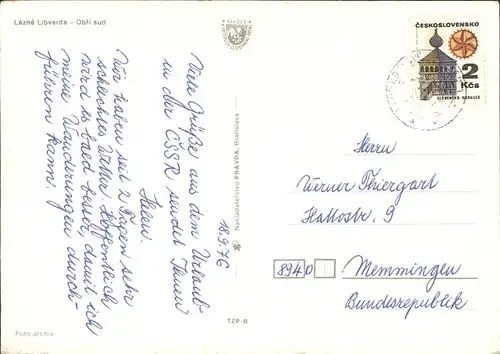 Lázně Libverda – Obří sud
Viele Grüße aus dem Urlaub
in der ČSSR sendet Ihnen
18.9.76
Wir haben seit 2 Tagen sehr
schlechtes Wetter. Hoffentlich
wird es bald besser, damit ich
meine Wanderungen durch-
führen kann.
Foto archiv
Nakladatelstvo PRAVDA, Bratislava
TZP-B
ČESKOSLOVENSKO
2
Kčs
SLOVENSKO-HORNSEK
Herrn
Werner Thiergart
Hallostr. 9
8940 Memmingen
Bundesrepublik